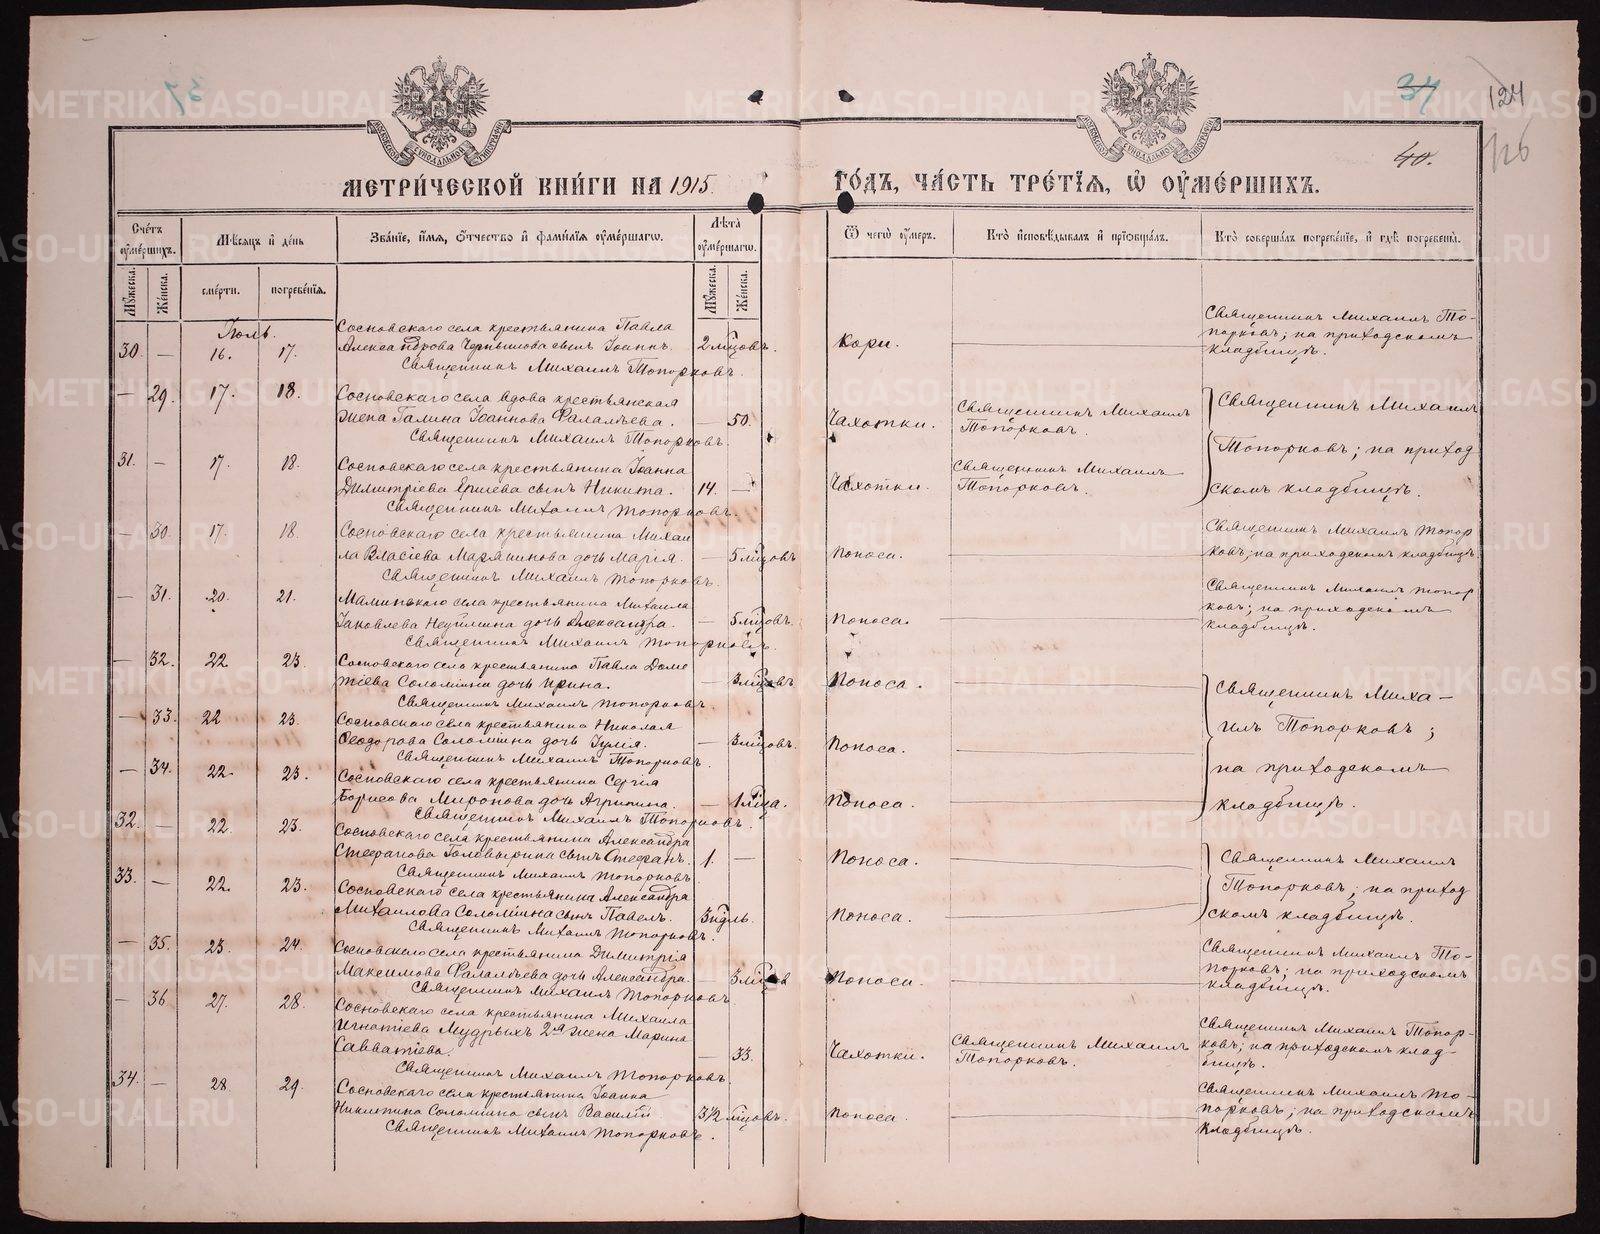 37
124
126
40.
МЕТРИ́ЧЕСКОЙ КНИ́ГИ НА 1915.
ГО́ДЪ, ЧА́СТЬ ТРЕ́ТІѦ, Ѡ҆ ОУ҆МЕ́РШИХЪ.
Сче́тъ оу҆ме́ршихъ.
Мѣ́сяцъ и҆ де́нь
Зва́нїе, и҆́мѧ, ѻ҆́тчество и҆ фами́лїѧ оу҆ме́ршагѡ.
Лѣ́та оу҆ме́ршагѡ.
Ѿ чегѡ̀ оу҆́меръ.
Кто̀ и҆сповѣ́дывалъ и҆ прїѡбща́лъ.
Кто̀ соверша́лъ погребе́нїе, и҆ гдѣ̀ погребены̀.
Мꙋ́жеска.
Же́нска.
сме́рти.
погребе́нїѧ.
Мꙋ́жеска.
Же́нска.
Іюль.
30. — 16. 17.
Сосновскаго села крестьянина Павла
Александрова Чернышова сынъ Іоаннъ. 2 мѣсцовъ.
Священникъ Михаилъ Топорковъ.
Кори.
Священникъ Михаилъ То-
порковъ; на приходскомъ
кладбищѣ.
— 29. 17. 18.
Сосновскаго села вдова крестьянская
жена Галина Іоаннова Фалалѣева. — 50.
Священникъ Михаилъ Топорковъ.
Чахотки.
Священникъ Михаилъ
Топорковъ.
Священникъ Михаилъ
Топорковъ; на приход
скомъ кладбищѣ.
31. — 17. 18.
Сосновскаго села крестьянина Іоанна
Димитріева Ершева сынъ Никита. 14. —
Священникъ Михаилъ Топорковъ.
Чахотки.
Священникъ Михаилъ
Топорковъ.
— 30. 17. 18.
Сосновскаго села крестьянина Михаи
ла Власіева Марянинова дочь Марія. — 5 мѣсцовъ
Священникъ Михаилъ Топорковъ.
Поноса.
Священникъ Михаилъ Топор
ковъ; на приходскомъ кладбищѣ
— 31. 20. 21.
Маминскаго села крестьянина Михаила
Іаковлева Неуймина дочь Александра. — 5 мѣсцовъ.
Священникъ Михаилъ Топорковъ.
Поноса.
Священникъ Михаилъ Топор
ковъ; на приходскомъ
кладбищѣ.
— 32. 22. 23.
Сосновскаго села крестьянина Павла Доме
тіева Соломеина дочь Ирина. — 3 мѣсцовъ
Священникъ Михаилъ Топорковъ
Поноса.
Священникъ Миха—
илъ Топорковъ;
на приходскомъ
кладбищѣ.
— 33. 22 23.
Сосновскаго села крестьянина Николая
Ѳеодорова Соломеина дочь Іулія. — 3 мѣсцовъ.
Священникъ Михаилъ Топорковъ.
Поноса.
— 34. 22. 23.
Сосновскаго села крестьянина Сергія
Борисова Миронова дочь Агрипина. — 1 мѣсца.
Священникъ Михаилъ Топорковъ.
Поноса.
32. — 22. 23.
Сосновскаго села крестьянина Александра
Стефанова Головырина сынъ Стефанъ. 1. —
Священникъ Михаилъ Топорковъ
Поноса.
Священникъ Михаилъ
Топорковъ; на приход
скомъ кладбищѣ.
33. — 22. 23.
Сосновскаго села крестьянина Александра
Михаилова Соломеина сынъ Павелъ. 3 ндль.
Священникъ Михаилъ Топорковъ.
Поноса.
— 35. 23. 24.
Сосновскаго села крестьянина Димитрія
Максимова Фалалѣева дочь Александра. 3 мѣсцов
Священникъ Михаилъ Топорковъ
Поноса.
Священникъ Михаилъ То-
порковъ; на приходскомъ
кладбищѣ.
— 36 27. 28.
Сосновскаго села крестьянина Михаила
Игнатіева Мудрыхъ 2-я жена Марина
Савватіева. — 33.
Священникъ Михаилъ Топорковъ.
Чахотки.
Священникъ Михаилъ
Топорковъ.
Священникъ Михаилъ Топор-
ковъ; на приходскомъ клад-
бищѣ.
34. — 28 29
Сосновскаго села крестьянина Іоанна
Никитина Соломеина сынъ Василій 3½ мѣсцовъ.
Священникъ Михаилъ Топорковъ.
Поноса.
Священникъ Михаилъ То-
порковъ; на приходскомъ
кладбищѣ.
METRIKI.GASO-URAL.RU